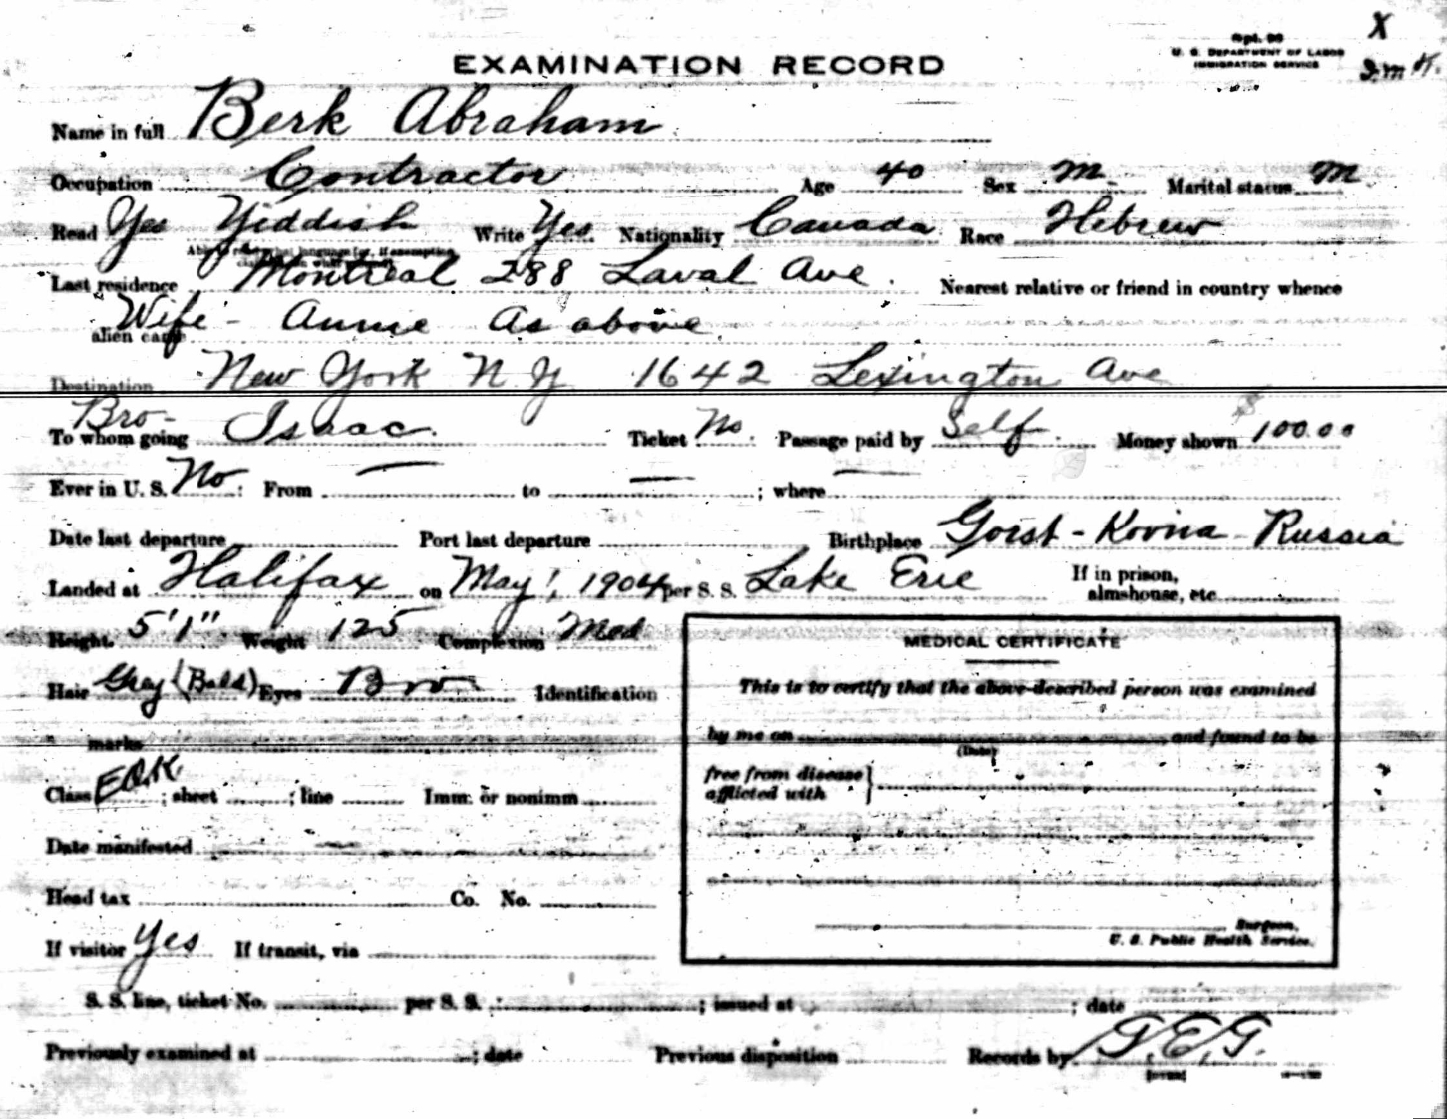 X
U. S. DEPARTMENT OF LABOR
IMMIGRATION SERVICE
EXAMINATION RECORD
Name in full Berk Abraham
Occupation Contractor Age 40 Sex M. Marital status M
Read Yes Yiddish Write Yes Nationality Canada Race Hebrew
Last residence Montreal 288 Laval Ave. Nearest relative or friend in country whence
alien came Wife - Annie As above
Destination New York N Y 1642 Lexington Ave
To whom going Bro- Isaac. Ticket No. Passage paid by Self. Money shown $100.00
Ever in U. S. No: From — to — ; where —
Date last departure Port last departure Birthplace Russia
Landed at Halifax on May 1, 1904 per S. S. Lake Erie If in prison,
almshouse, etc
Height. 5'1" Weight 125 Complexion Med
Hair Gray (Bald) Eyes Bro Identification
marks
Class ; sheet ; line Imm. or nonimm
Date manifested
Head tax Co. No.
If visitor Yes If transit, via
S. S. line, ticket No. per S. S. ; issued at ; date
Previously examined at ; date Previous disposition Records by G.E.G.
MEDICAL CERTIFICATE
This is to certify that the above-described person was examined
by me on and found to be
(Date)
free from disease
afflicted with
Surgeon,
U. S. Public Health Service.